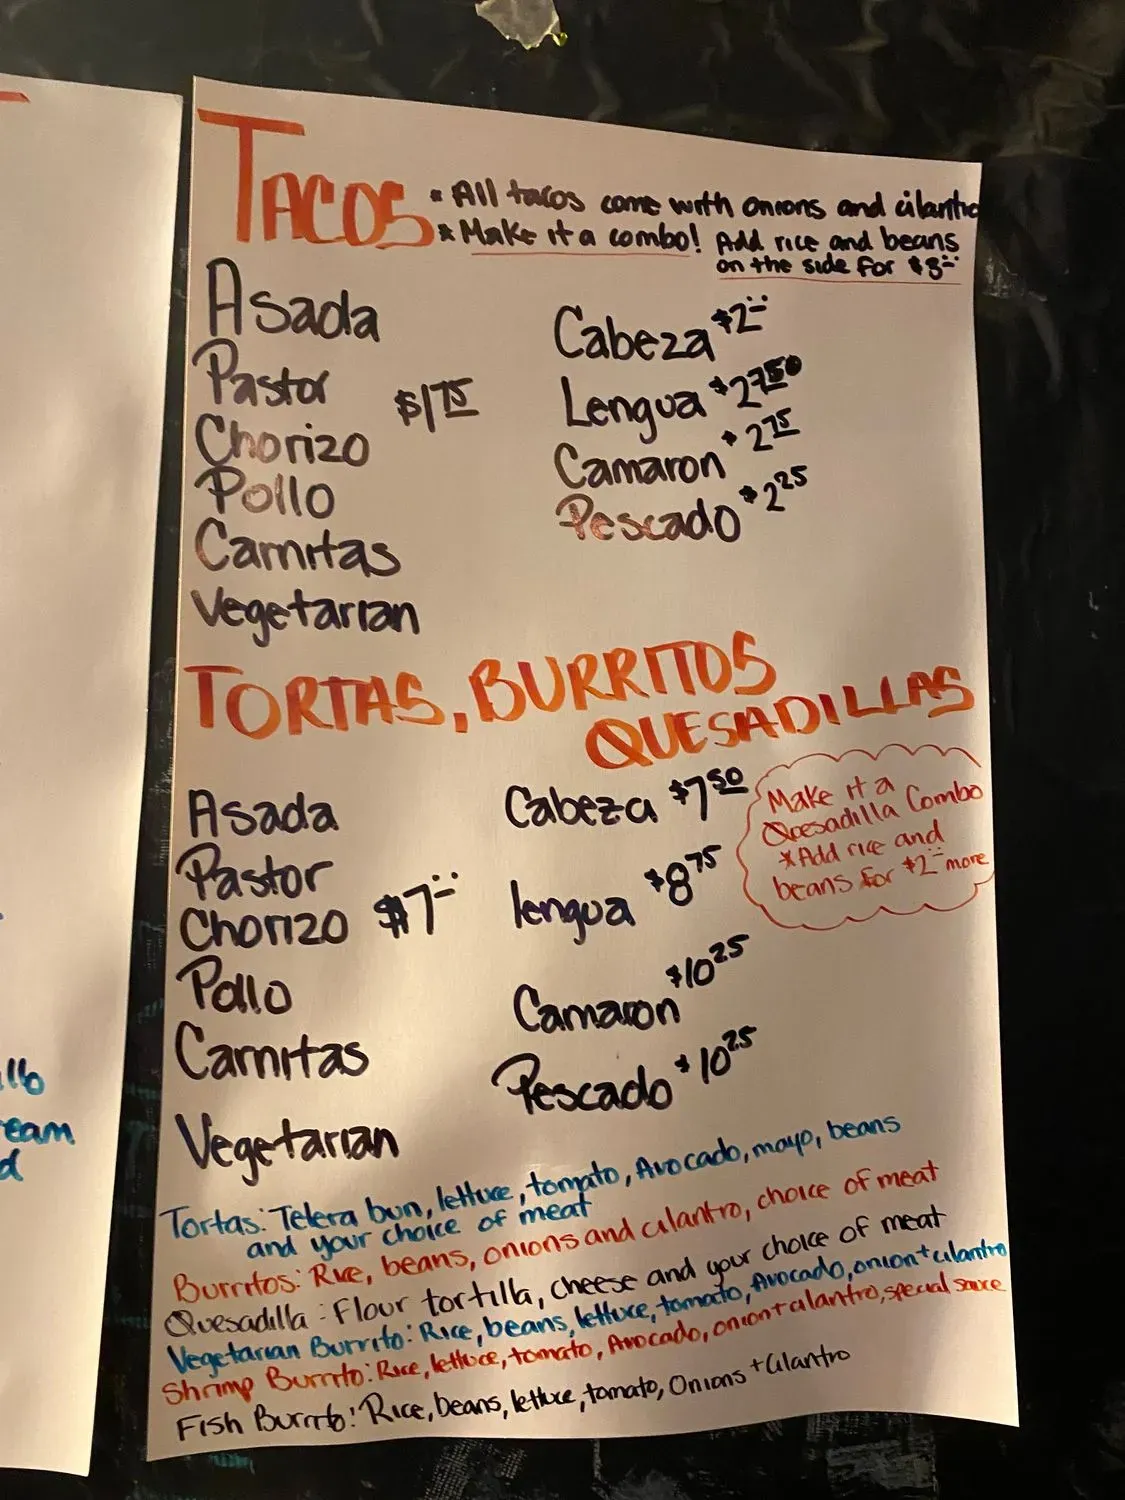 TACOS
* All tacos come with onions and cilantro
* Make it a combo! Add rice and beans
on the side for $3
Asada
Pastor
Chorizo $1.75
Pollo
Carnitas
Vegetarian
Cabeza $2
Lengua $2
Camaron $2.75
Pescado $2.25
TORTAS, BURRITOS
QUESADILLAS
Asada
Pastor
Chorizo $7
Pollo
Carnitas
Vegetarian
Cabeza $7.50
lengua $8.75
Camaron $10.25
Pescado $10.25
Make it a
Quesadilla Combo
*Add rice and
beans for $2 more
Tortas: Telera bun, lettuce, tomato, Avocado, mayo, beans
and your choice of meat
Burritos: Rice, beans, onions and cilantro, choice of meat
Quesadilla: Flour tortilla, cheese and your choice of meat
Vegetarian Burrito: Rice, beans, lettuce, tomato, Avocado, onion + cilantro
Shrimp Burrito: Rice, lettuce, tomato, Avocado, onion + cilantro, special sauce
Fish Burrito: Rice, beans, lettuce, tomato, Onions + Cilantro